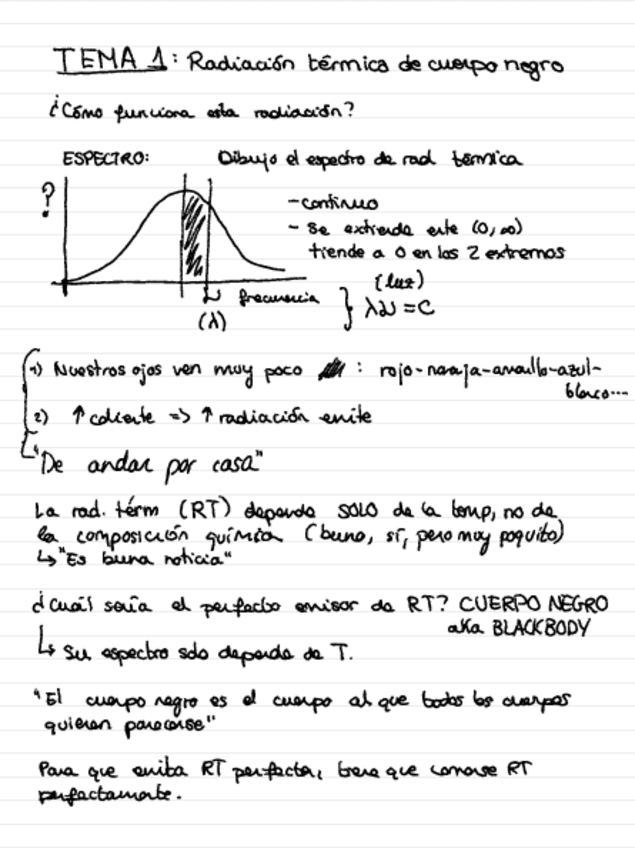 TEMA 1: Radiación térmica de cuerpo negro
¿Cómo funciona esta radiación?
ESPECTRO: Dibujo el espectro de rad térmica
?
- continuo
- Se extiende entre (0, ∞)
tiende a 0 en los 2 extremos
frecuencia
(λ)
(luz)
λν = c
1) Nuestros ojos ven muy poco : rojo-naranja-amarillo-azul-
blanco...
2) ↑ caliente => ↑ radiación emite
"De andar por casa"
La rad. térm (RT) depende SOLO de la temp, no de
la composición química (bueno, sí, pero muy poquito)
↳ "Es buena noticia"
¿Cuál sería el perfecto emisor de RT? CUERPO NEGRO
aka BLACKBODY
↳ Su espectro solo depende de T.
"El cuerpo negro es el cuerpo al que todos los cuerpos
quieren parecerse"
Para que emita RT perfecta, tiene que comerse RT
perfectamente.